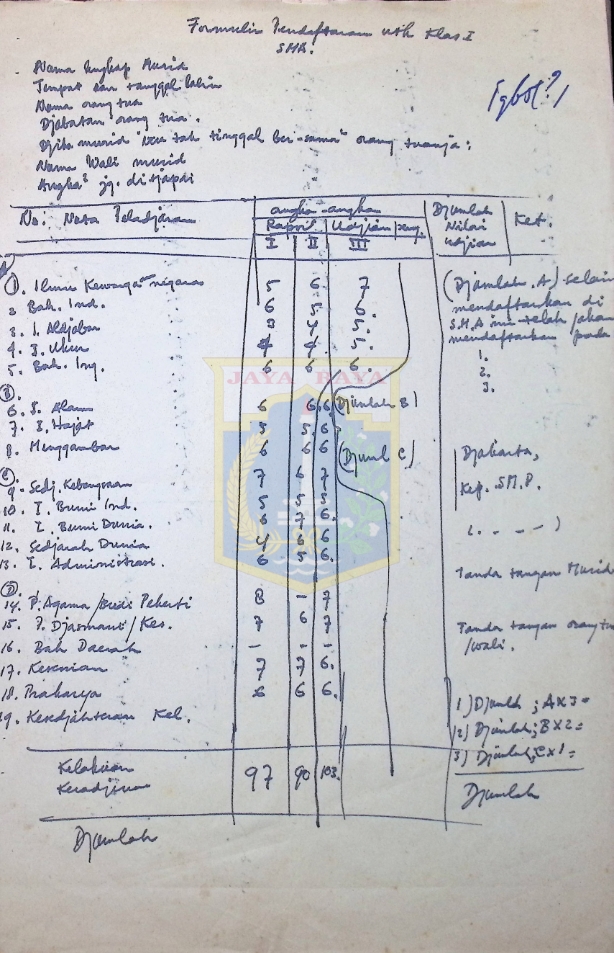 Formulir Pendaftaran utk Klas I
SMA.
Nama lengkap Murid
Tempat dan tanggal lahir
Nama orang tua
Djabatan orang tua.
Djika murid² itu tak tinggal ber-sama² orang tuanja:
Nama Wali murid
Angka² jg. ditjapai
No: Mata Peladjaran
angka-angka
Rapor Udjian
I II III
Djumlah Nilai Udjian
Ket.
A
1. Ilmu Kewarga negaraan 5 6 7
2 Bah. Ind. 6 5 6.
3. I. Aldjabar 3 4 5.
4. I. Ukur 4 4 5.
5. Bah. Ing. 6 6 6.
(Djumlah. A) Selain
mendaftarkan di
S.M.A ini telah/akan
mendaftarkan pada
1.
2.
3.
JAYA RAYA
B.
6. I. Alam 6 6 6 (Djumlah B)
7. I. Hajat 5 5 6
8. Menggambar 6 6 6 (Djuml C)
C.
9. Sedj. Kebangsaan 7 6 7
10. I. Bumi Ind. 5 5 5
11. I. Bumi Dunia. 6 7 6.
12. Sedjarah Dunia 4 6 6
13. I. Administrasi. 6 5 6.
Djakarta,
Kep. S.M.P.
( . - - - )
Tanda tangan Murid
D.
14. P. Agama /Budi Pekerti 8 - 7
15. P. Djasmani / Kes. 7 6 7
16. Bah Daerah - - -
17. Kesenian 7 7 6.
18. Prakarya 6 6 6.
19. Kesedjahteraan Kel.
Tanda tangan orang tua
/wali.
1) Djumlh ; A x 3 =
2) Djumlah; B x 2 =
3) Djumlah; C x 1 =
Djumlah
Kelakuan
Keradjinan
97 90 103.
Djumlah